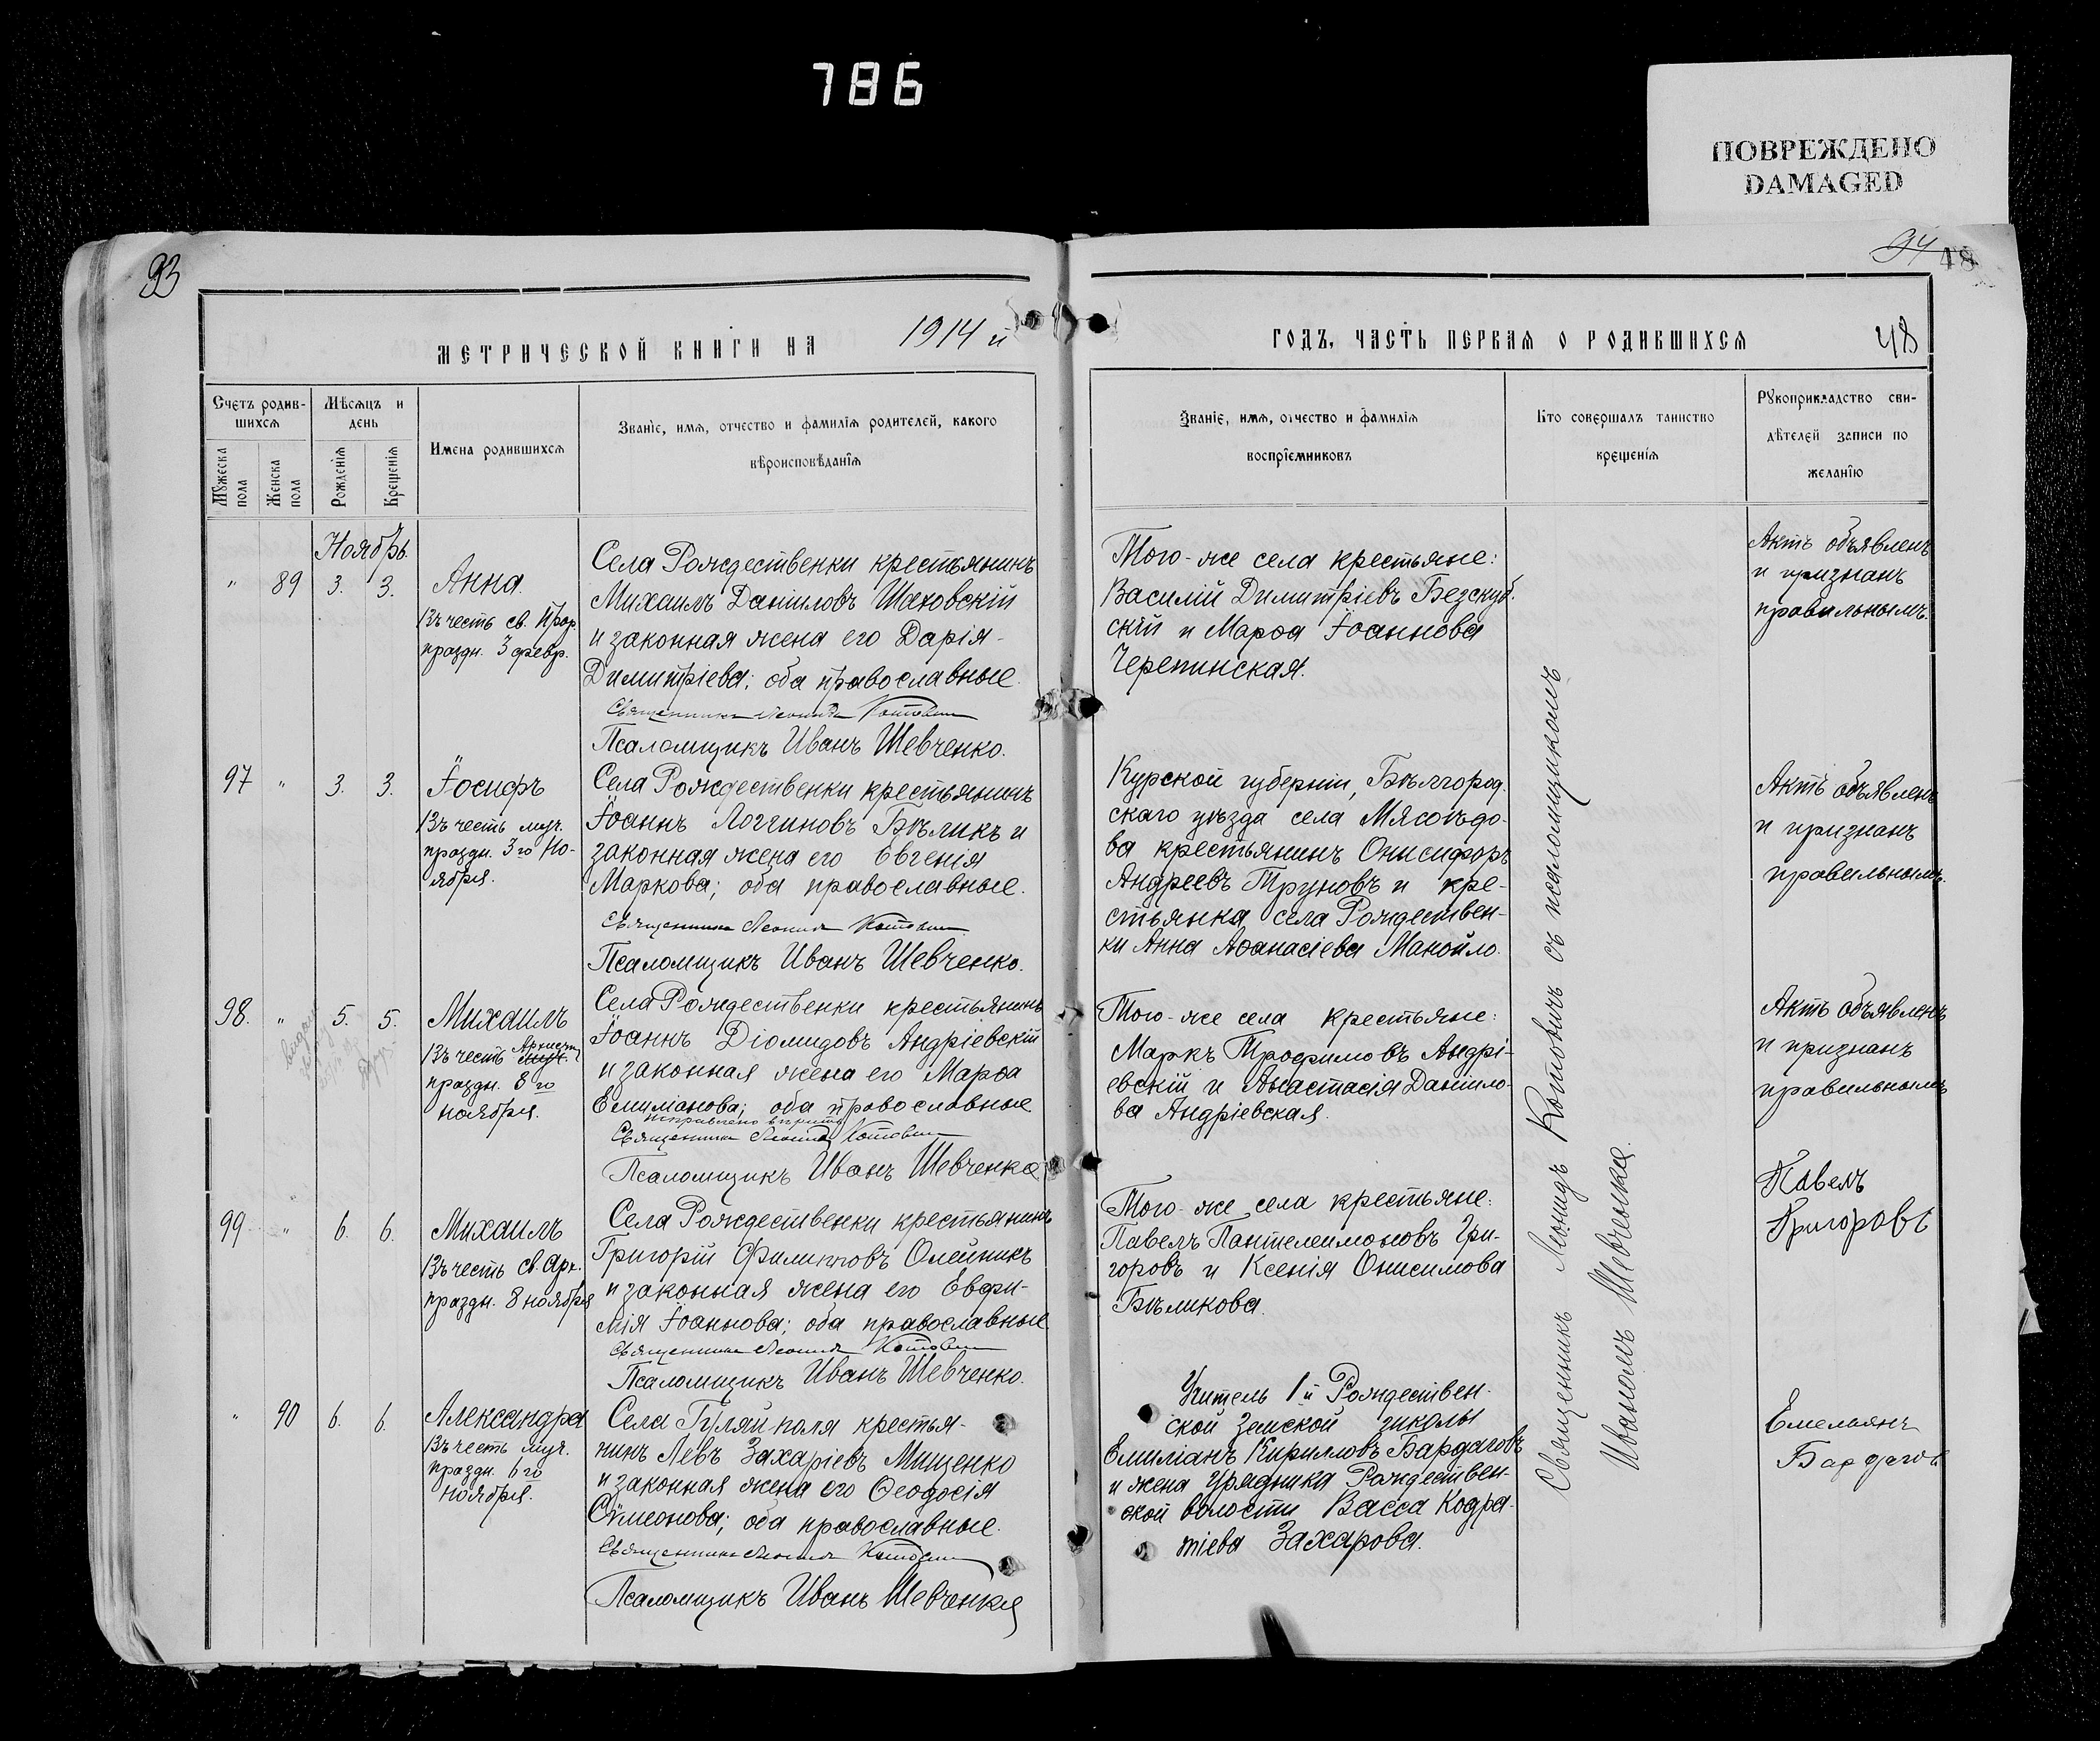 786
ПОВРЕЖДЕНО
DAMAGED
93
94
48
МЕТРИЧЕСКОЙ КНИГИ НА 1914 й
ГОДЪ, ЧАСТЬ ПЕРВАЯ О РОДИВШИХСЯ
48
Счетъ родив-
шихся
Мѣсяцъ и
день
Мужеска
пола
Женска
пола
Рожденія
Крещенія
Имена родившихся
Званіе, имя, отчество и фамилія родителей, какого
вѣроисповѣданія
Званіе, имя, отчество и фамилія
воспріемниковъ
Кто совершалъ таинство
крещенія
Рукоприкладство сви-
дѣтелей записи по
желанію
Ноябрь
" 89 3. 3.
Анна.
Въ честь св. Прор.
праздн. 3 февр.
Села Рождественки крестьянинъ
Михаилъ Даніиловъ Шаховскій
и законная жена его Дарія
Димитріева; оба православные.
Священникъ Леонидъ Котовичъ
Псаломщикъ Иванъ Шевченко.
Того-же села крестьяне:
Василій Димитріевъ Безскуб-
скій и Марѳа Іоаннова
Черепинская.
Актъ объявленъ
и признанъ
правильнымъ.
97 " 3. 3.
Іосифъ
Въ честь муч.
праздн. 3го Но-
ября.
Села Рождественки крестьянинъ
Іоаннъ Логгиновъ Бѣликъ и
законная жена его Евгенія
Маркова; оба православные.
Священникъ Леонидъ Котовичъ
Псаломщикъ Иванъ Шевченко.
Курской губерніи, Бѣлгород-
скаго уѣзда села Мясоѣдо-
ва крестьянинъ Онисифоръ
Андреевъ Труновъ и кре-
стьянка села Рождествен-
ки Анна Аѳанасіева Манойло.
Актъ объявленъ
и признанъ
правильнымъ.
98. " 5. 5.
Михаилъ
Въ честь Архист.
праздн. 8го
ноября.
Села Рождественки крестьянинъ
Іоаннъ Діомидовъ Андріевскій
и законная жена его Марѳа
Емиліанова; оба православные
Священникъ Леонидъ Котовичъ
Псаломщикъ Иванъ Шевченко
Того-же села крестьяне:
Маркъ Трофимовъ Андрі-
евскій и Анастасія Даніило-
ва Андріевская.
Актъ объявленъ
и признанъ
правильнымъ
99 " 6. 6.
Михаилъ
Въ честь св. Арх.
праздн. 8 ноября
Села Рождественки крестьянинъ
Григорій Филипповъ Олейникъ
и законная жена его Евфи-
мія Іоаннова; оба православные
Священникъ Леонидъ Котовичъ
Псаломщикъ Иванъ Шевченко.
Того-же села крестьяне:
Павелъ Пантелеимоновъ Гри-
горовъ и Ксенія Онисимова
Бѣликова.
Павелъ
Григоровъ
" 90 6. 6.
Александра
Въ честь муч.
праздн. 6го
ноября.
Села Гуляйполя крестья-
нинъ Левъ Захаріевъ Мищенко
и законная жена его Ѳеодосія
Сѵмеонова; оба православные.
Священникъ Леонидъ Котовичъ
Псаломщикъ Иванъ Шевченко
Учитель 1й Рождествен-
ской Земской школы
Емиліанъ Кирилловъ Бардаговъ
и жена урядника Рождествен-
ской волости Васса Кодра-
тіева Захарова.
Емельянъ
Бардаговъ
Священникъ Леонидъ Котовичъ съ псаломщикомъ
Иваномъ Шевченко.